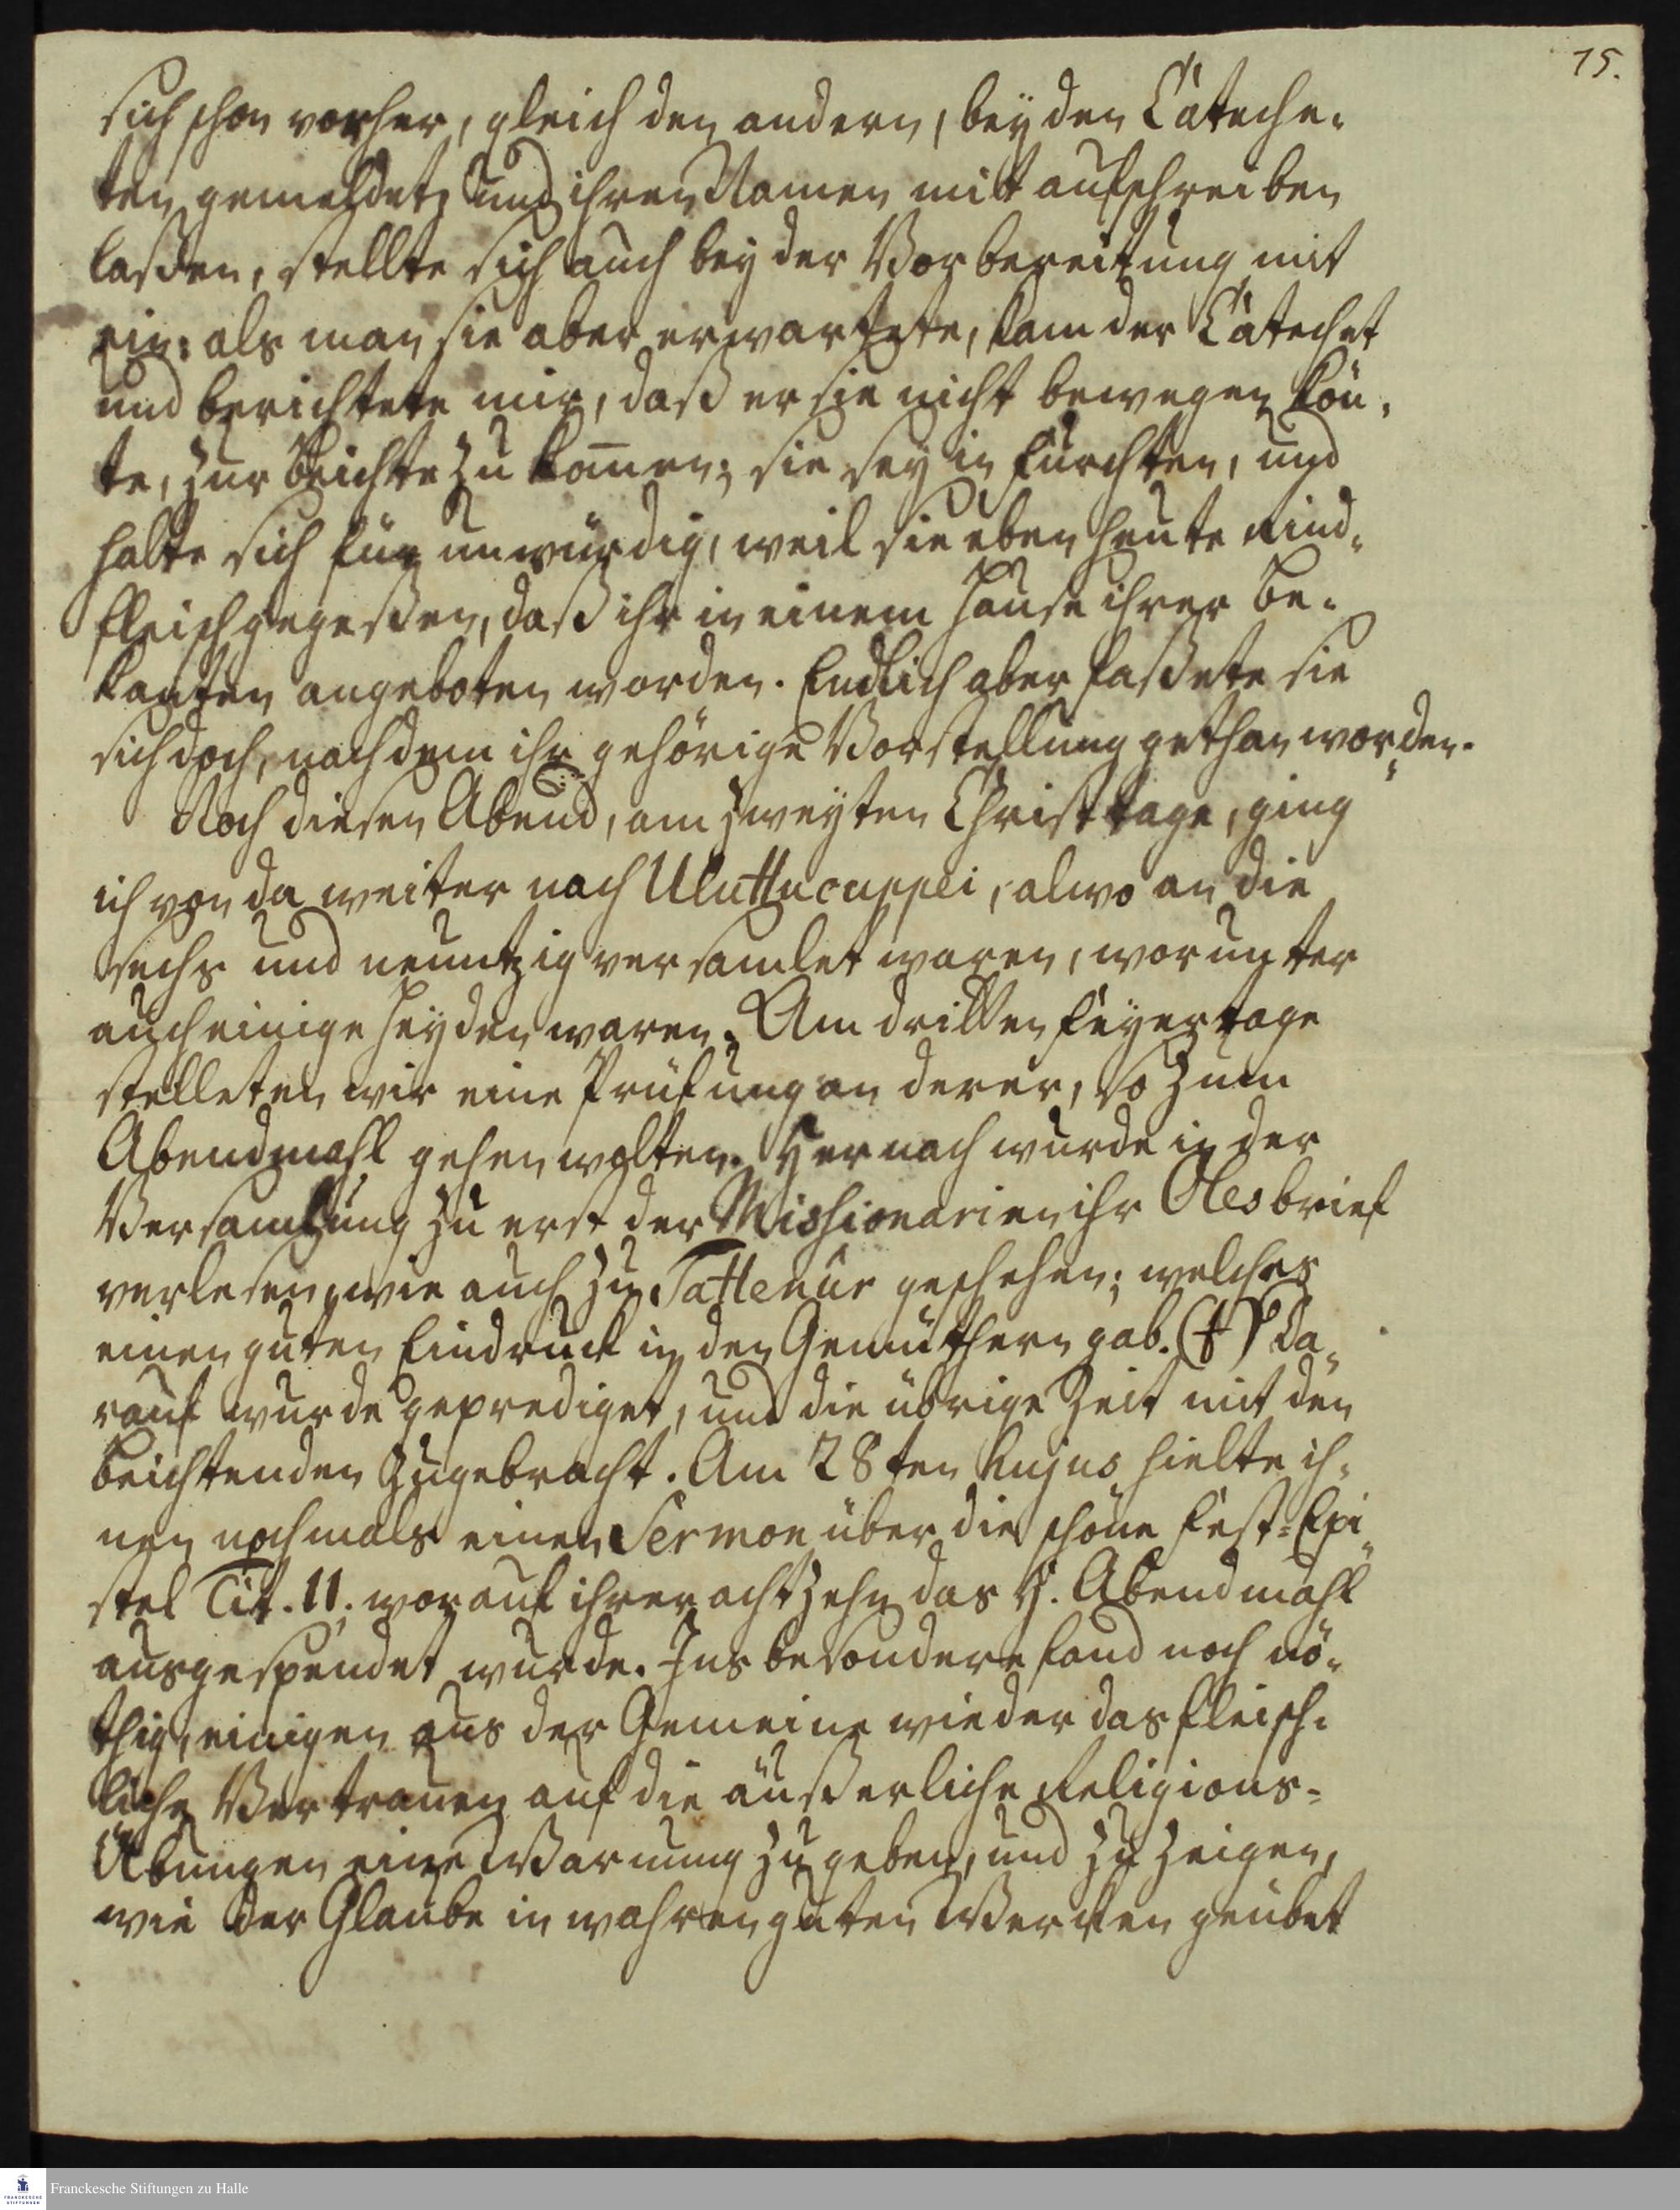 15.
sich schon vorher, gleich den andern, bey den Cateche-
ten gemeldet, und ihren Namen mit aufschreiben
laßen, stellte sich auch bey der Vorbereitung mit
ein: als man sie aber erwartete, kam der Catechet
und berichtete mir, daß er sie nicht bewegen kön-
te, zur Beichte zu kom̄en; sie sey in Furchten, und
halte sich für unwürdig, weil sie eben heute Rind-
fleisch gegeßen, daß ihr in einem Hause ihrer Be-
kanten angeboten worden. Endlich aber faßete sie
sich doch, nachdem ihr gehörige Vorstellung gethan worden.
Noch diesen Abend, am zweyten Christtage, ging
ich von da weiter nach Uluttucuppei, alwo an die
sechs und neuntzig versamlet waren, worunter
auch einige Heyden waren. Am dritten Feyertage
stelleten wir eine Prüfung an derer, so zum
Abendmahl gehen wolten. Hernach wurde in der
Versamlung zu erst der Missionarien ihr Olesbrief
verlesen, wie auch zu Tattenúr geschehen; welches
einen guten Eindruck in den Gemüthern gab. (†) Da-
rauf wurde geprediget, und die übrige Zeit mit den
Beichtenden zugebracht. Am 28ten hujus hielte ih-
nen nochmals einen Sermon über die schöne Fest-Epi-
stel Tit. 11. worauf ihrer achtzehn das H. Abendmahl
ausgespendet wurde. Ins besondere fand noch nö-
thig, einigen aus der Gemeine wieder das fleisch-
liche Vertrauen auf die äußerliche Religions-
Übungen eine Warnung zu geben, und zu zeigen,
wie der Glaube in wahren guten Wercken geübet
Franckesche Stiftungen zu Halle